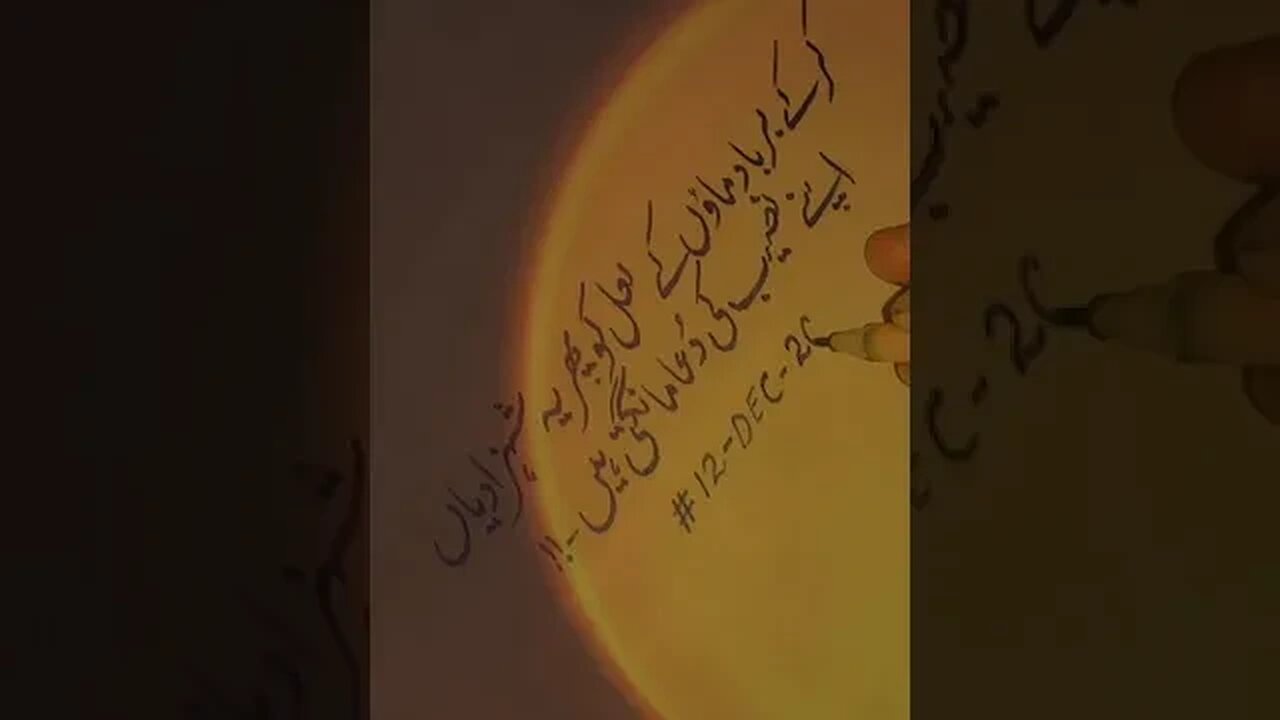 کرکے برباد ماؤں کے لعل کو پھر یہ شہزادیاں
اپنے نصیب کی دُعا مانگتی ہیں -!!
#12-DEC-20